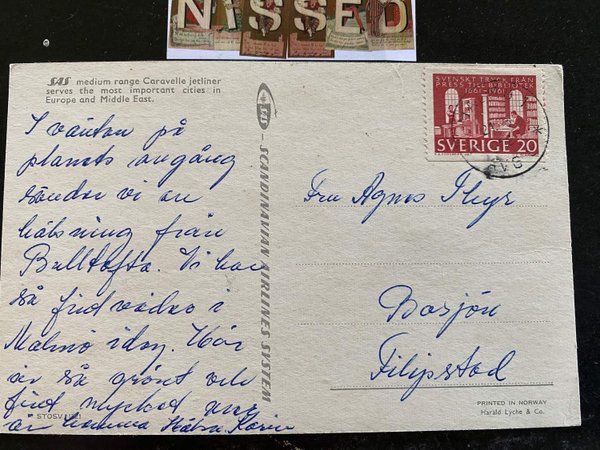 NISSED
SAS medium range Caravelle jetliner
serves the most important cities in
Europe and Middle East.
I väntan på
planets avgång
sänder vi en
hälsning från
Bulltofta. Vi har
så fint väder i
Malmö idag. Här
är så grönt och
fint mycket mer
än hemma Karin
SAS SCANDINAVIAN AIRLINES SYSTEM
SVENSKT TRYCK FRÅN
PRESS TILL BIBLIOTEK
1661-1961
SVERIGE 20
Fru Agnes Thyr
Bosjön
Filipstad
PRINTED IN NORWAY
Harald Lyche & Co.